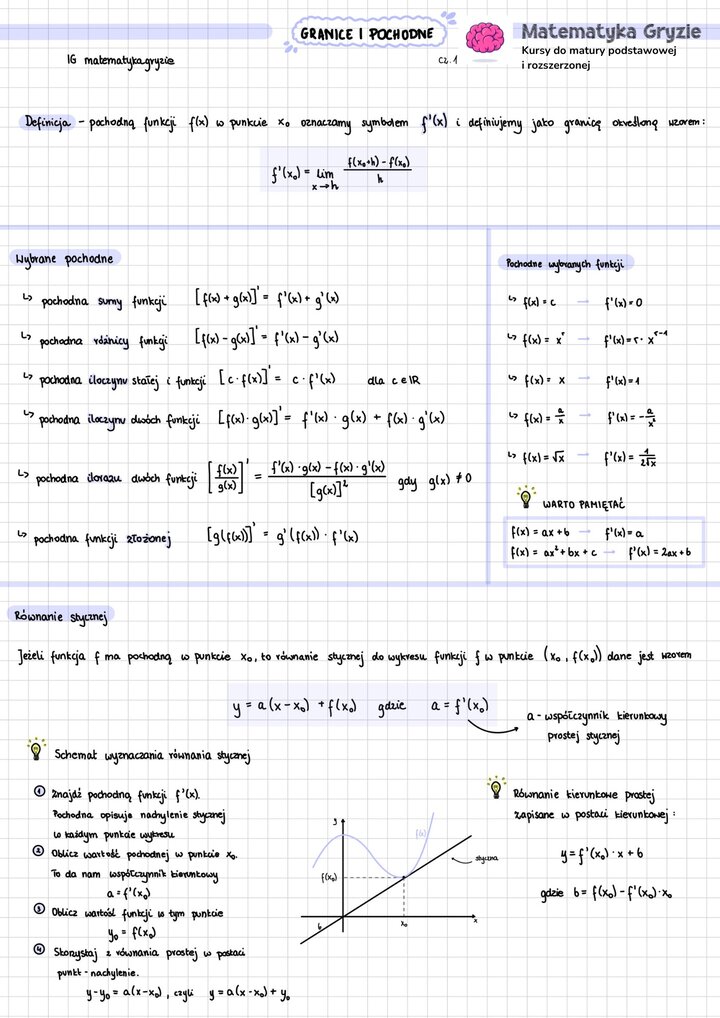 GRANICE I POCHODNE
Matematyka Gryzie
Kursy do matury podstawowej
i rozszerzonej
IG matematyka.gryzie
cz. 1
Definicja - pochodną funkcji f(x) w punkcie x₀ oznaczamy symbolem f'(x) i definiujemy jako granicę określoną wzorem:
f'(x₀) = lim x→h (f(x₀+h) - f(x₀))/h
Wybrane pochodne
↳ pochodna sumy funkcji [f(x) + g(x)]' = f'(x) + g'(x)
↳ pochodna różnicy funkcji [f(x) - g(x)]' = f'(x) - g'(x)
↳ pochodna iloczynu stałej i funkcji [c · f(x)]' = c · f'(x) dla c ∈ ℝ
↳ pochodna iloczynu dwóch funkcji [f(x) · g(x)]' = f'(x) · g(x) + f(x) · g'(x)
↳ pochodna ilorazu dwóch funkcji [f(x)/g(x)]' = (f'(x) · g(x) - f(x) · g'(x))/[g(x)]² gdy g(x) ≠ 0
↳ pochodna funkcji złożonej [g(f(x))]' = g'(f(x)) · f'(x)
Pochodne wybranych funkcji
↳ f(x) = c → f'(x) = 0
↳ f(x) = xʳ → f'(x) = r · xʳ⁻¹
↳ f(x) = x → f'(x) = 1
↳ f(x) = a/x → f'(x) = -a/x²
↳ f(x) = √x → f'(x) = 1/2√x
WARTO PAMIĘTAĆ
f(x) = ax + b → f'(x) = a
f(x) = ax² + bx + c → f'(x) = 2ax + b
Równanie stycznej
Jeżeli funkcja f ma pochodną w punkcie x₀, to równanie stycznej do wykresu funkcji f w punkcie (x₀, f(x₀)) dane jest wzorem
y = a(x - x₀) + f(x₀) gdzie a = f'(x₀)
a - współczynnik kierunkowy
prostej stycznej
Schemat wyznaczania równania stycznej
① Znajdź pochodną funkcji f'(x).
Pochodna opisuje nachylenie stycznej
w każdym punkcie wykresu
② Oblicz wartość pochodnej w punkcie x₀.
To da nam współczynnik kierunkowy
a = f'(x₀)
③ Oblicz wartość funkcji w tym punkcie
y₀ = f(x₀)
④ Skorzystaj z równania prostej w postaci
punkt - nachylenie.
y - y₀ = a(x - x₀), czyli y = a(x - x₀) + y₀
y
f(x)
styczna
f(x₀)
b
x₀
x
Równanie kierunkowe prostej
zapisane w postaci kierunkowej:
y = f'(x₀) · x + b
gdzie b = f(x₀) - f'(x₀) · x₀